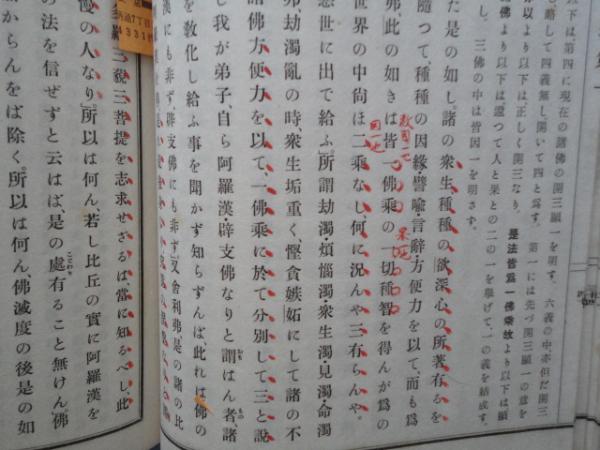 下は第四に現在の諸佛の開三顯一を明す。六義の中亦但だ開三
も略して四義無し開いて四と爲す。第一には先づ開三顯一の意を
より以下は、正しく開三なり。是法皆爲一佛乘故より以下は顯
佛より以下は、還つて人と果との二の一を擧げて、一の義を結成す。
し、三佛の中は皆因一を明さず。
た是の如し。諸の衆生、種種の欲深心の所著有るを
隨つて、種種の因緣・譬喩・言辭・方便力を以て、而も爲
弗、此の如きは皆一佛乘の一切種智を得んが爲の
世界の中尙ほ二乘なし、何に況んや三有らんや。
惡世に出で給ふ。所謂劫濁・煩惱濁・衆生濁・見濁・命濁
弗、劫濁亂の時、衆生垢重く、慳貪嫉妬にして諸の不
諸佛方便力を以て、一佛乘に於て分別して三と說
し我が弟子、自ら阿羅漢・辟支佛なりと謂はん者、諸
を敎化し給ふ事を聞かず知らずんば此れは佛の
漢にも非ず、辟支佛にも非ず。又舍利弗、是の諸の比
三藐三菩提を志求せざるは、當に知るべし、此
慢の人なり。所以は何ん、若し比丘の實に阿羅漢を
の法を信ぜずと云はば、是の處有ること無けん。佛
からんをば除く。所以は何ん、佛滅度の後是の如